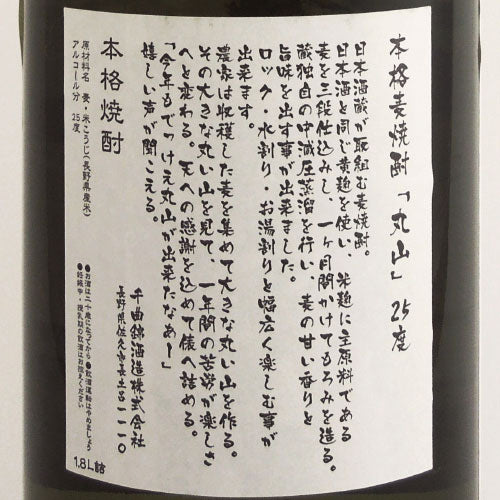 本格麦焼酎「丸山」25度
日本酒蔵が取組む麦焼酎。
日本酒と同じ黄麹を使い、米麹に主原料である
麦を三段仕込みし、一ヶ月間かけてもろみを造る。
蔵独自の中減圧蒸溜を行い、麦の甘い香りと
旨味を出す事が出来ました。
ロック・水割り・お湯割りと幅広く楽しむ事が
出来ます。
農家は収穫した麦を集めて大きな丸い山を作る。
その大きな丸い山を見て、一年間の苦労が楽しさ
へと変わる。天への感謝を込めて俵へ詰める。
「今年もでっけえ丸山が出来たなあー」
嬉しい声が聞こえる。
千曲錦酒造株式会社
長野県佐久市長土呂一一一〇
本格焼酎
原材料名 麦・米こうじ(長野県産米)
アルコール分 25度
●お酒は二十歳になってから ●飲酒運転はやめましょう
●妊娠中・授乳期の飲酒はお控えください
1.8L詰